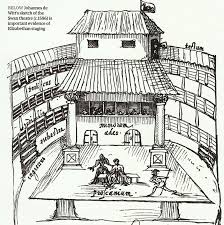 BELOW Johannes de
Witt's sketch of the
Swan theatre (c.1596) is
important evidence of
Elizabethan staging
orchestra
mimorum
ædes
proscænium